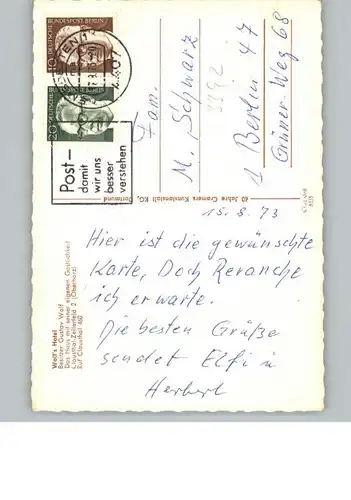 Wolf's Hotel
Besitzer Gustav Wolf
Das Haus mit seiner eigenen Gastlichkeit
Clausthal-Zellerfeld 2 (Oberharz)
Ruf Clausthal
15.8.73
Hier ist die gewünschte
Karte, Doch Revanche
ich erwarte.
Die besten Grüße
sendet Elfi u
Herbert
DEUTSCHE BUNDESPOST BERLIN
10
20
Post-
damit
wir uns
besser
verstehen
60 Jahre Cramers Kunstanstalt KG, Dortmund
Fam.
M. Schwarz
1 Berlin 47
Grüner-Weg 68